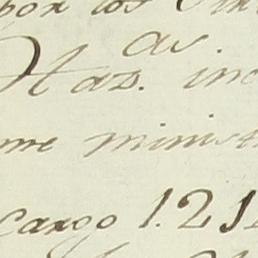 por los
as
Haz. inc
me minist
cargo 1.212